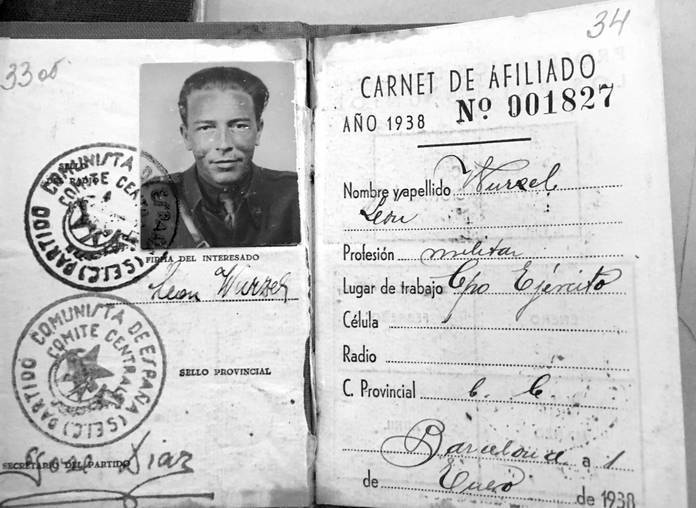 3305
PARTIDO COMUNISTA DE ESPAÑA (S.E.I.C.)
COMITE CENTRAL
FIRMA DEL INTERESADO
Leon Wurzel
PARTIDO COMUNISTA DE ESPAÑA (S.E.I.C.)
COMITE CENTRAL
SELLO PROVINCIAL
SECRETARIO DEL PARTIDO
Jose Diaz
34
CARNET DE AFILIADO
AÑO 1938 Nº 001827
Nombre y apellido Wurzel
Leon
Profesión militar
Lugar de trabajo Cpo Ejército
Célula
Radio
C. Provincial C. C.
Barcelona a 1
de Enero de 1938